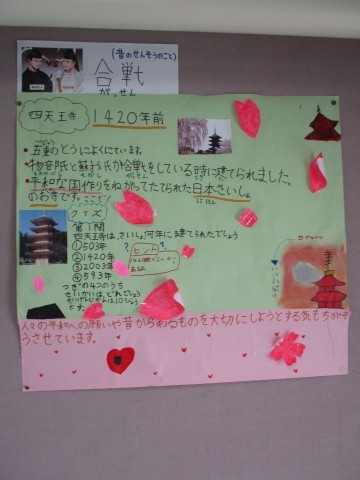 (昔のせんそうのこと)
合戦
がっせん
四天王寺 1420年前
ごじゅう
・五重のとうによくにています。
・物部氏と蘇が氏が合戦をしている時に建てられました。
・平和な国作りをねがってたてられた日本さいしょ
のお寺です。
にほん
クイズ
第1問
四天王寺は、さいしょ何年に建てられたでしょう
①503年
②1420年
③2003年
④593年
?ヒント?
つぎの4つのうち
せいかいは、どれでしょう
人々の平和への願いや昔からあるものを大切にしようとする気もちがそ
うさせています。